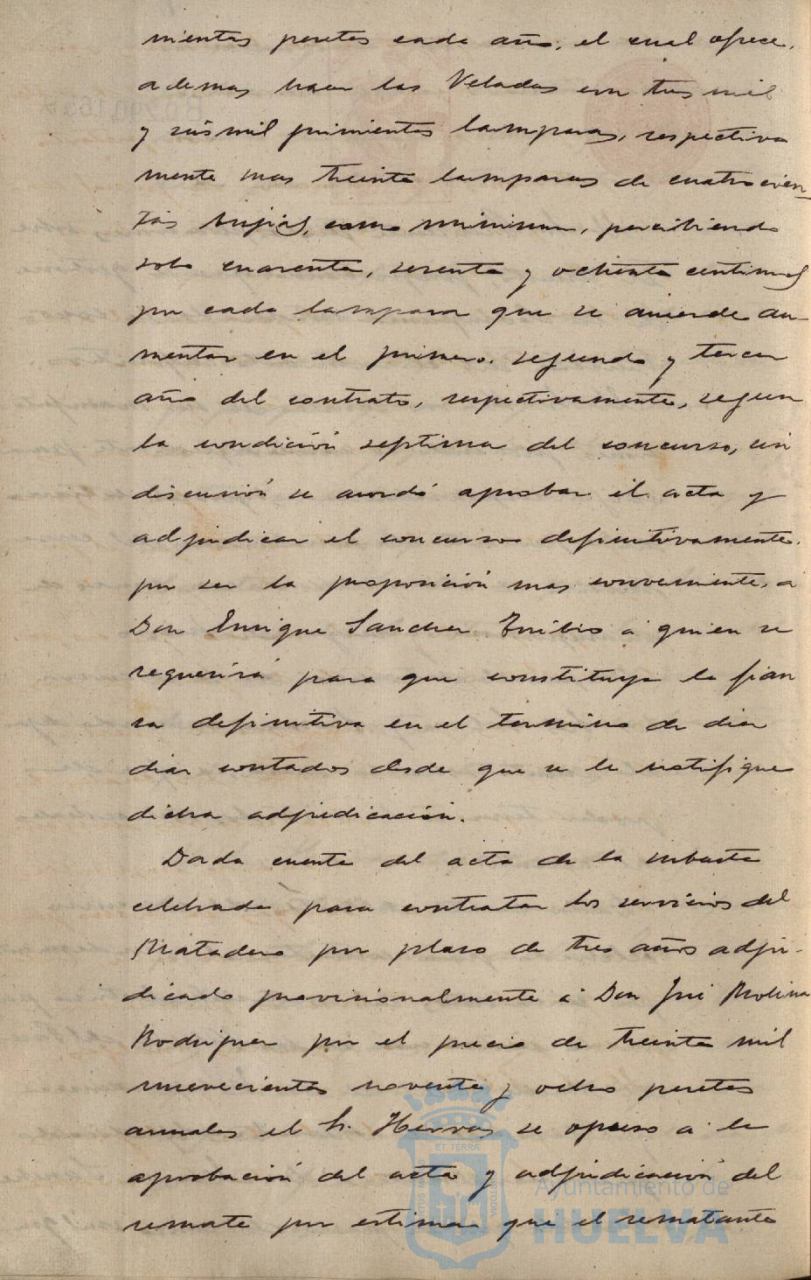 nientas pesetas cada año, el cual ofrece,
ademas hacer las Veladas con tres mil
y seis mil quinientas lamparas, respectiva
mente mas treinta lamparas de cuatrocien-
tas bujias, como minimum, percibiendo
solo cuarenta, sesenta y ochenta centimos
por cada lampara que se acuerde au-
mentar en el primero, segundo y tercer
año del contrato, respectivamente, segun
la condición septima del concurso, sin
discusión se acordó aprobar el acta y
adjudicar el concurso definitivamente,
por ser la proposición mas conveniente, a
Don Enrique Sanchez Toribio a quien se
requerirá para que constituya la fian
za definitiva en el termino de diez
dias contados desde que se le notifique
dicha adjudicación.
Dada cuenta del acta de la subasta
celebrada para contratar los servicios del
Matadero por plazo de tres años adju-
dicado provisionalmente a Don José Molina
Rodriguez por el precio de treinta mil
novecientas noventa y ocho pesetas
anuales el Sr. Hervas se opuso a la
aprobación del acta y adjudicación del
remate por estimar que el rematante
Ayuntamiento de
HUELVA